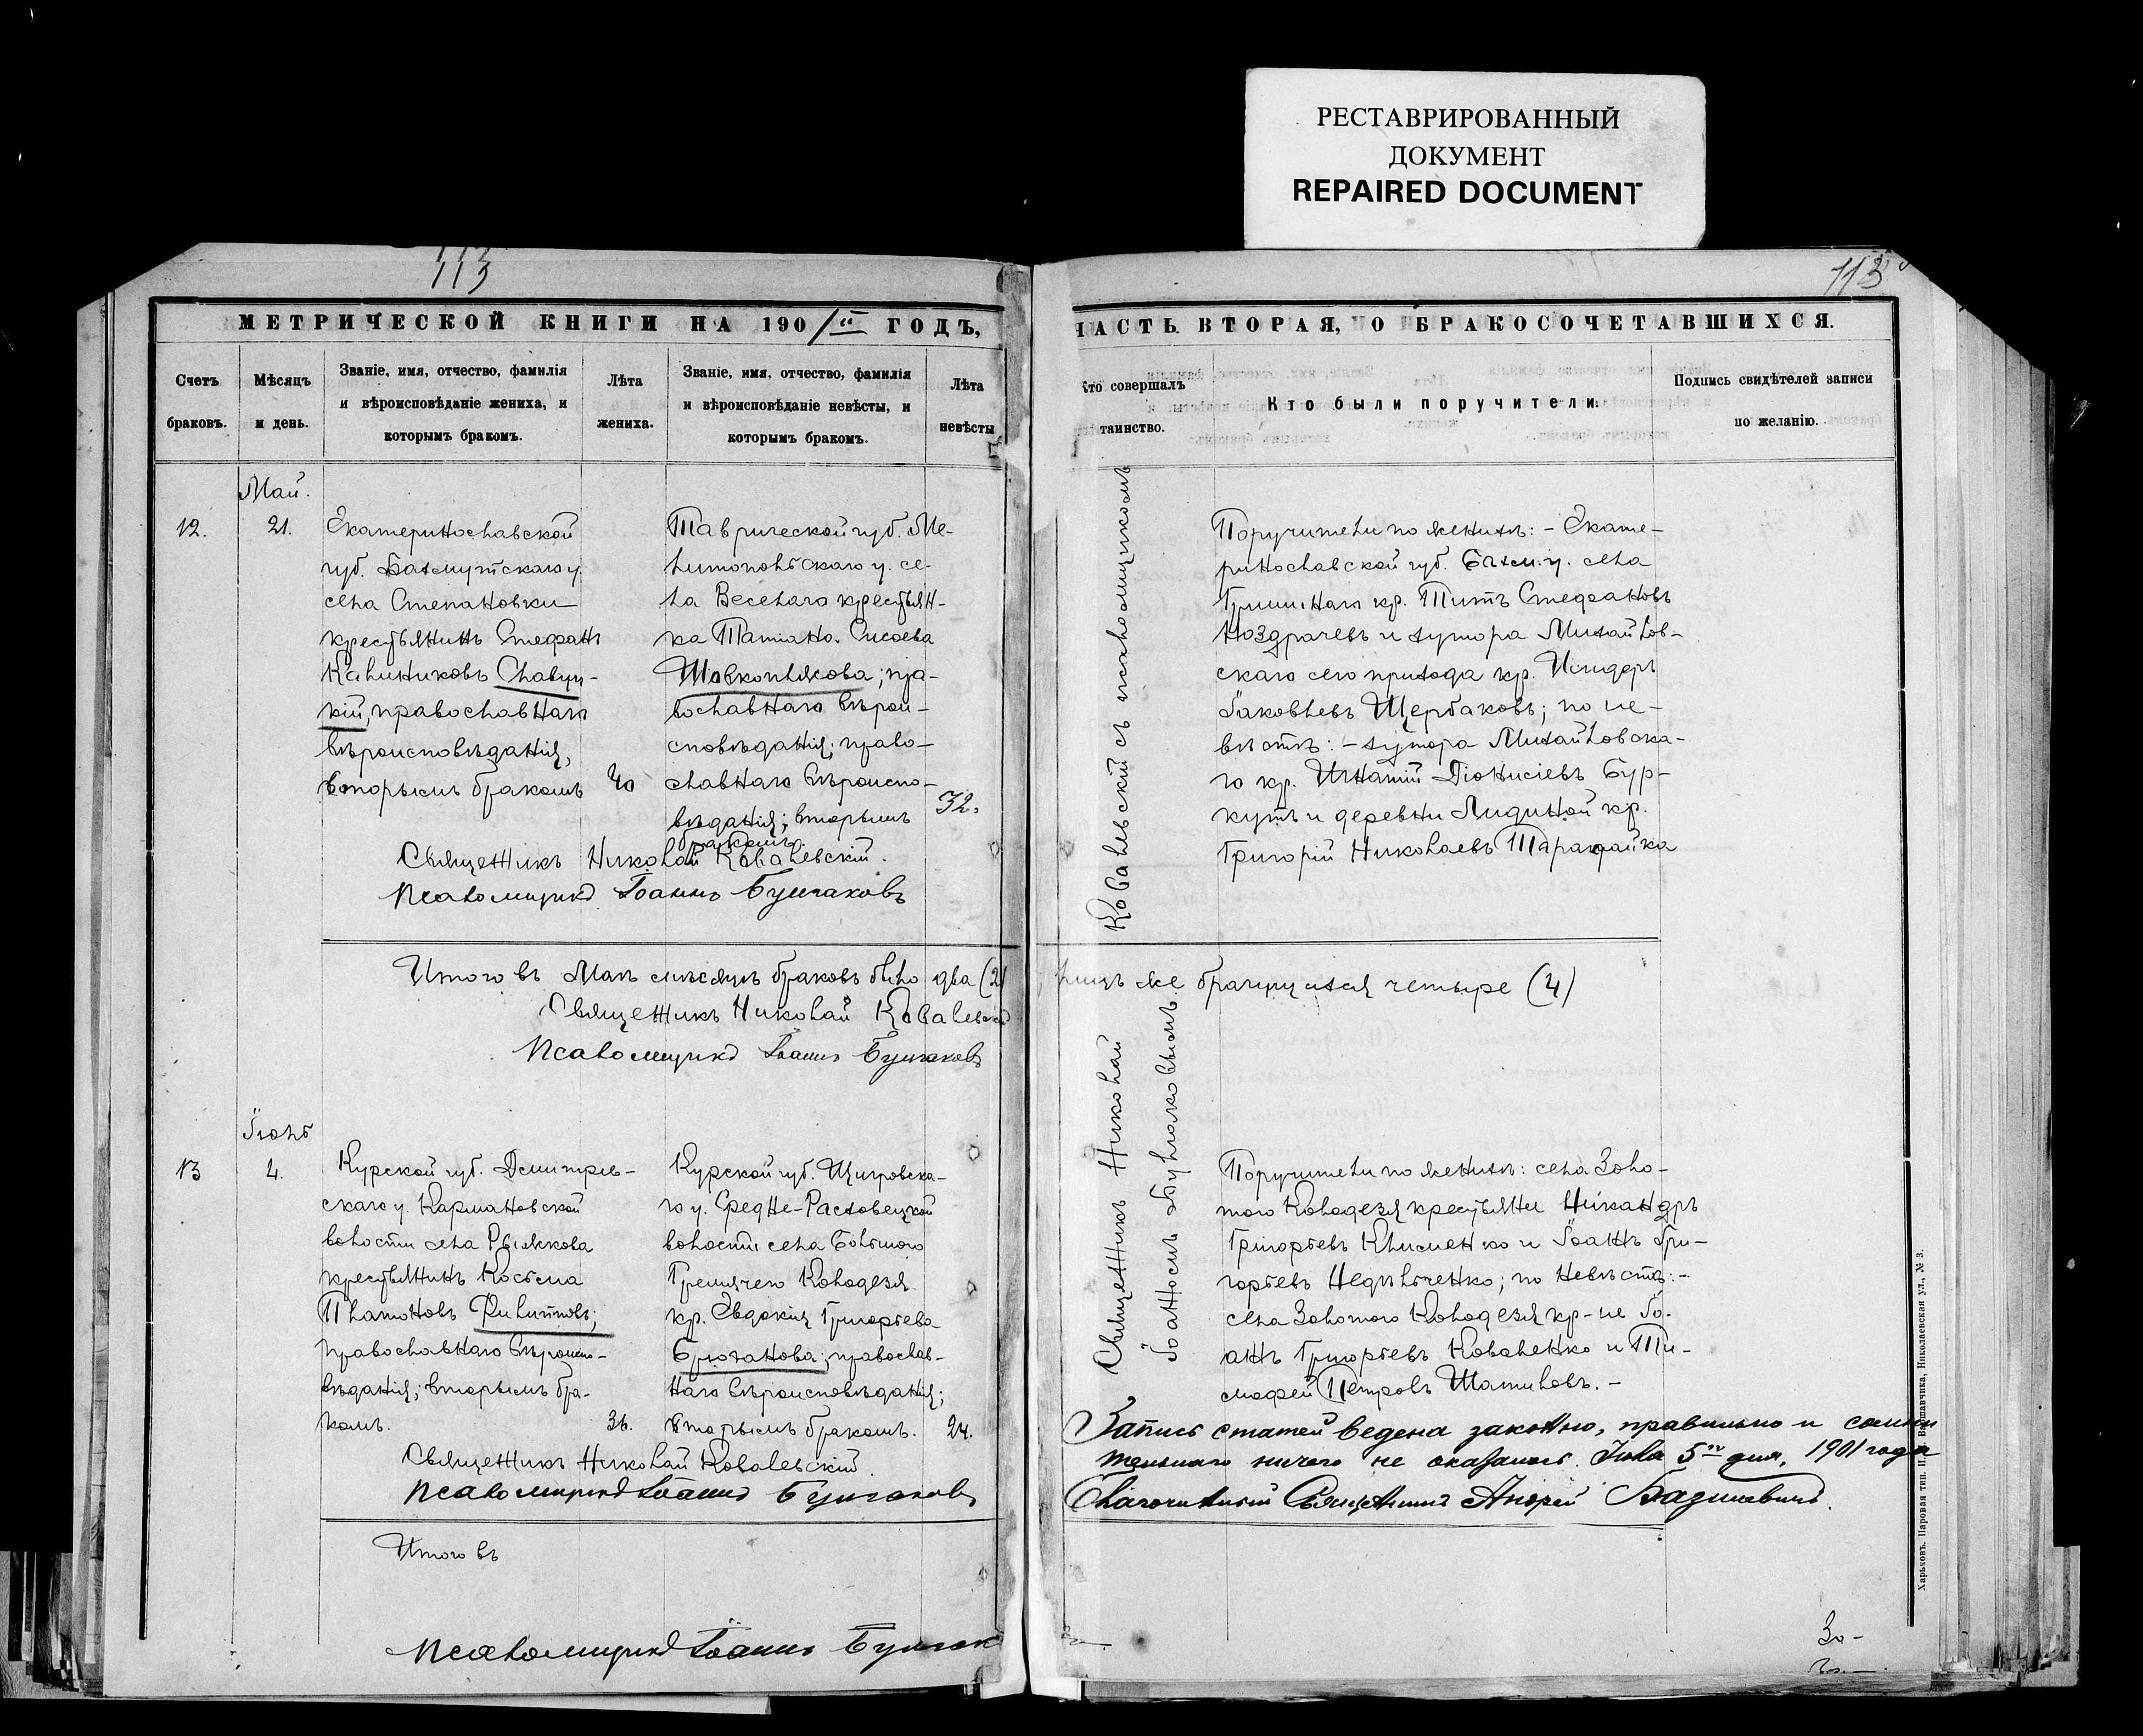 РЕСТАВРИРОВАННЫЙ
ДОКУМЕНТ
REPAIRED DOCUMENT
113
113
МЕТРИЧЕСКОЙ КНИГИ НА 1901й ГОДЪ,
Счетъ
браковъ.
Мѣсяцъ
и день.
Званіе, имя, отчество, фамилія
и вѣроисповѣданіе жениха, и
которымъ бракомъ.
Лѣта
жениха.
Званіе, имя, отчество, фамилія
и вѣроисповѣданіе невѣсты, и
которымъ бракомъ.
Лѣта
невѣсты
Май.
12.
21.
Екатеринославской
губ. Бахмутскаго у.
села Степановки
крестьянинъ Стефанъ
Калиниковъ Славуц-
кій, православнаго
вѣроисповѣданія,
вторымъ бракомъ
40
Таврической губ. Ме-
литопольскаго у. се-
ла Веселаго крестьян-
ка Татіана Сисоева
Шовкоплясова; пра-
вославнаго вѣрои-
сповѣданія; право-
славнаго вѣроиспо-
вѣданія; вторымъ
бракомъ.
32.
Священникъ Николай Ковалевскій.
Псаломщикъ Іоаннъ Булгаковъ
Итого въ Маѣ мѣсяцѣ браковъ было два (2)
Священникъ Николай Ковалевскій
Псаломщикъ Іоаннъ Булгаковъ
Іюнь
13
4.
Курской губ. Дмитріев-
скаго у. Кармановской
волости села Рыжкова
крестьянинъ Косьма
Платоновъ Филиповъ;
православнаго вѣроиспо-
вѣданія; вторымъ бра-
комъ.
36.
Курской губ. Щигровска-
го у. Средне-Расховецкой
волости села Большого
Гремячего Колодезя
кр. Евдокія Григорьева
Брюханова; православ-
наго вѣроисповѣданія;
вторымъ бракомъ.
24.
Священникъ Николай Ковалевскій.
Псаломщикъ Іоаннъ Булгаковъ
Итого въ
Псаломщикъ Іоаннъ Булгак
113
ЧАСТЬ ВТОРАЯ, О БРАКОСОЧЕТАВШИХСЯ.
Кто совершалъ
таинство.
Кто были поручители.
Подпись свидѣтелей записи
по желанію.
Священникъ Николай Ковалевскій съ псаломщикомъ
Іоанномъ Булгаковымъ.
Поручители по женихѣ: – Екате-
ринославской губ. Бахм. у. села
Гришинаго кр. Титъ Стефановъ
Ноздрачевъ и хутора Михайлов-
скаго сего прихода кр. Исидоръ
Іаковлевъ Щербаковъ; по не-
вѣстѣ: – хутора Михайловска-
го кр. Игнатій Діонисіевъ Бур-
кутъ и деревни Лидиной кр.
Григорій Николаевъ
лицъ же брачущихся четыре (4)
Поручители по женихѣ: села Золо-
того Колодезя крестьяне Никандръ
Григорьевъ Клименко и Іоаннъ Гри-
горьевъ Недѣльченко; по невѣстѣ: –
села Золотого Колодезя кр-не Іо-
аннъ Григорьевъ Коваленко и Ти-
мофей Петровъ Шатиловъ. –
Запись статей ведена законно, правильно и сомни
тельнаго ничего не оказалось. Іюля 5го дня, 1901 года
Благочинный Священникъ Андрей Базилевичъ.
Харьковъ. Паровая тип. И. М. Варшавчика, Николаевская ул., № 3.
30 –